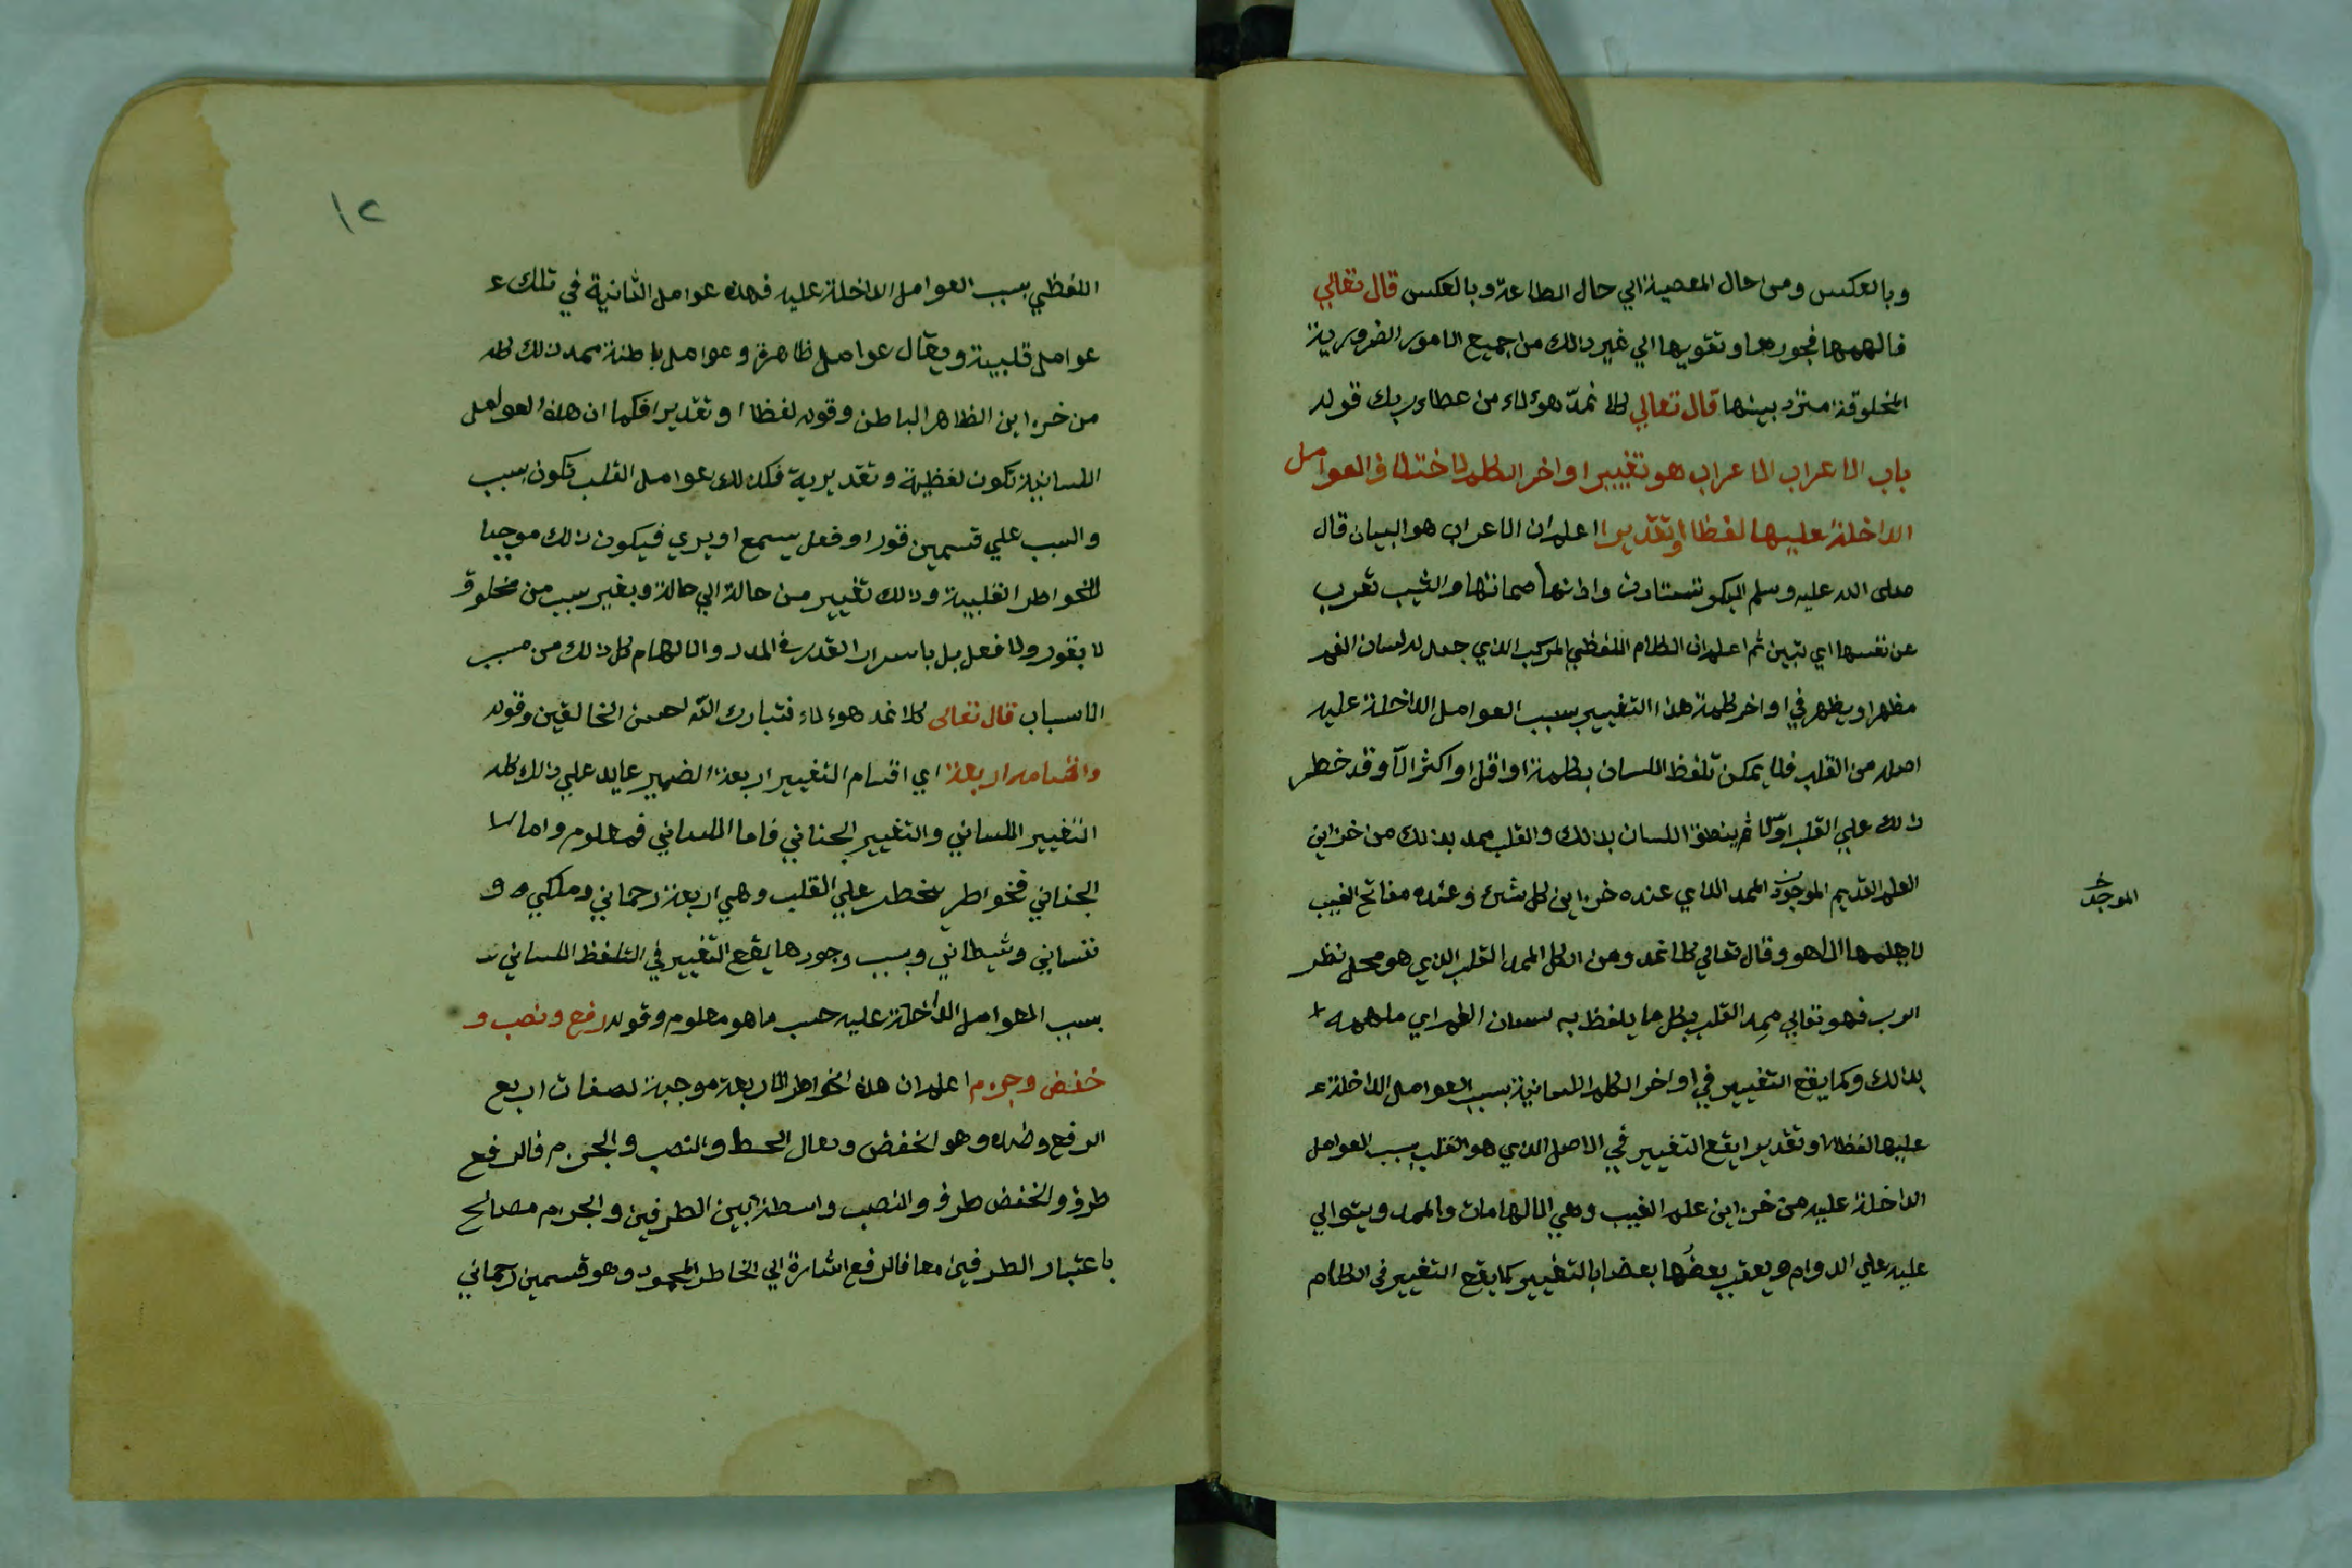 وبالعكس ومن حال المعصية الي حال الطاعة وبالعكس قال تعالي
فالهمها فجورها وتقويها الي غير ذالك من جميع الامور الضرورية
المخلوقة منزد بينها قال تعالي كلا نمدّ هؤلاء من عطاء ربك قوله
باب الاعراب الاعراب هو تغيير اواخر الكلم لاختلاف العوامل
الداخلة عليها لفظا او تقديرا اعلم ان الاعراب هو البيان قال
صلى الله عليه وسلم البكر تستادن واذنها صماتها والثيب تعرب
عن نفسها اي تبين ثم اعلم ان الكلام اللفظي المركب الذي جعل له لسان الفم
مظهرا ويظهر في اواخر كلمة هذا التغيير بسبب العوامل الداخلة عليه
اصله من القلب فلا يمكن تلفظ اللسان بكلمة او اقل او اكثر الا وقد خطر
ذلك علي القلب اوّلا ثم ينطق اللسان بذالك والقلب ممد بذلك من خزاين
العلم القديم الموجود الممد الذي عنده خزاين كل شيء وعنده مفاتح الغيب
لا يعلمها الا هو وقال تعالي كلا نمد ومن الكل الممد القلب الذي هو محل نظر
الرب فهو تعالي ممِد القلب بكل ما يلفظ به لسان الفم اي ملهمه
بذالك وكما يقع التغيير في اواخر الكلم اللسانية بسبب العوامل الداخلة
عليها لفظا او تقديرا يقع التغيير في الاصل الذي هو القلب بسبب العوامل
الداخلة عليه من خزاين علم الغيب وهي الالهامات والممد ويتوالي
عليه علي الدوام ويعقب بعضُها بعضا بالتغيير كما يقع التغيير في الكلام
الموجد
١٢
اللفظي بسبب العوامل الداخلة عليه فهذه عوامل الثانية في تلك
عوامل قلبية ويقال عوامل ظاهرة وعوامل باطنة ممد ذلك كله
من خزاين الظاهر الباطن وقوله لفظا او تقديرا فكما ان هذه العوامل
اللسانية تكون لفظية وتقديرية فكذلك عوامل القلب تكون بسبب
والسبب علي قسمين قول او فعل يسمع او يري فيكون ذلك موجبا
للخواطر القلبية وذلك تغيير من حالة الي حالة وبغير سبب من مخلوق
لا بقول ولا فعل بل باسرار القدرة المدد والالهام كل ذلك من مسبب
الاسباب قال تعالى كلا نمد هولاء فتبارك الله احسن الخالقين وقوله
واقسامه اربعة اي اقسام التغيير اربعة الضمير عايد علي ذلك كله
التغيير اللساني والتغيير الجناني فاما اللساني فمعلوم واما
الجناني فخواطر يخطر علي القلب وهي اربعة رحماني وملكي و
نفساني وشيطاني وبسبب وجودها يقع التغيير في التلفظ اللساني
بسبب العوامل الداخلة عليه حسب ما هو معلوم وقوله رفع ونصب و
خفض وجزم اعلم ان هذه الخواطر الاربعة موجبة لصفات اربع
الرفع وضده وهو الخفض ويقال الحط والنصب والجزم فالرفع
طرف والخفض طرف والنصب واسطة بين الطرفين والجزم مصالح
باعتبار الطرفين معا فالرفع اشارة الي الخاطر المحمود وهو قسمين رحماني